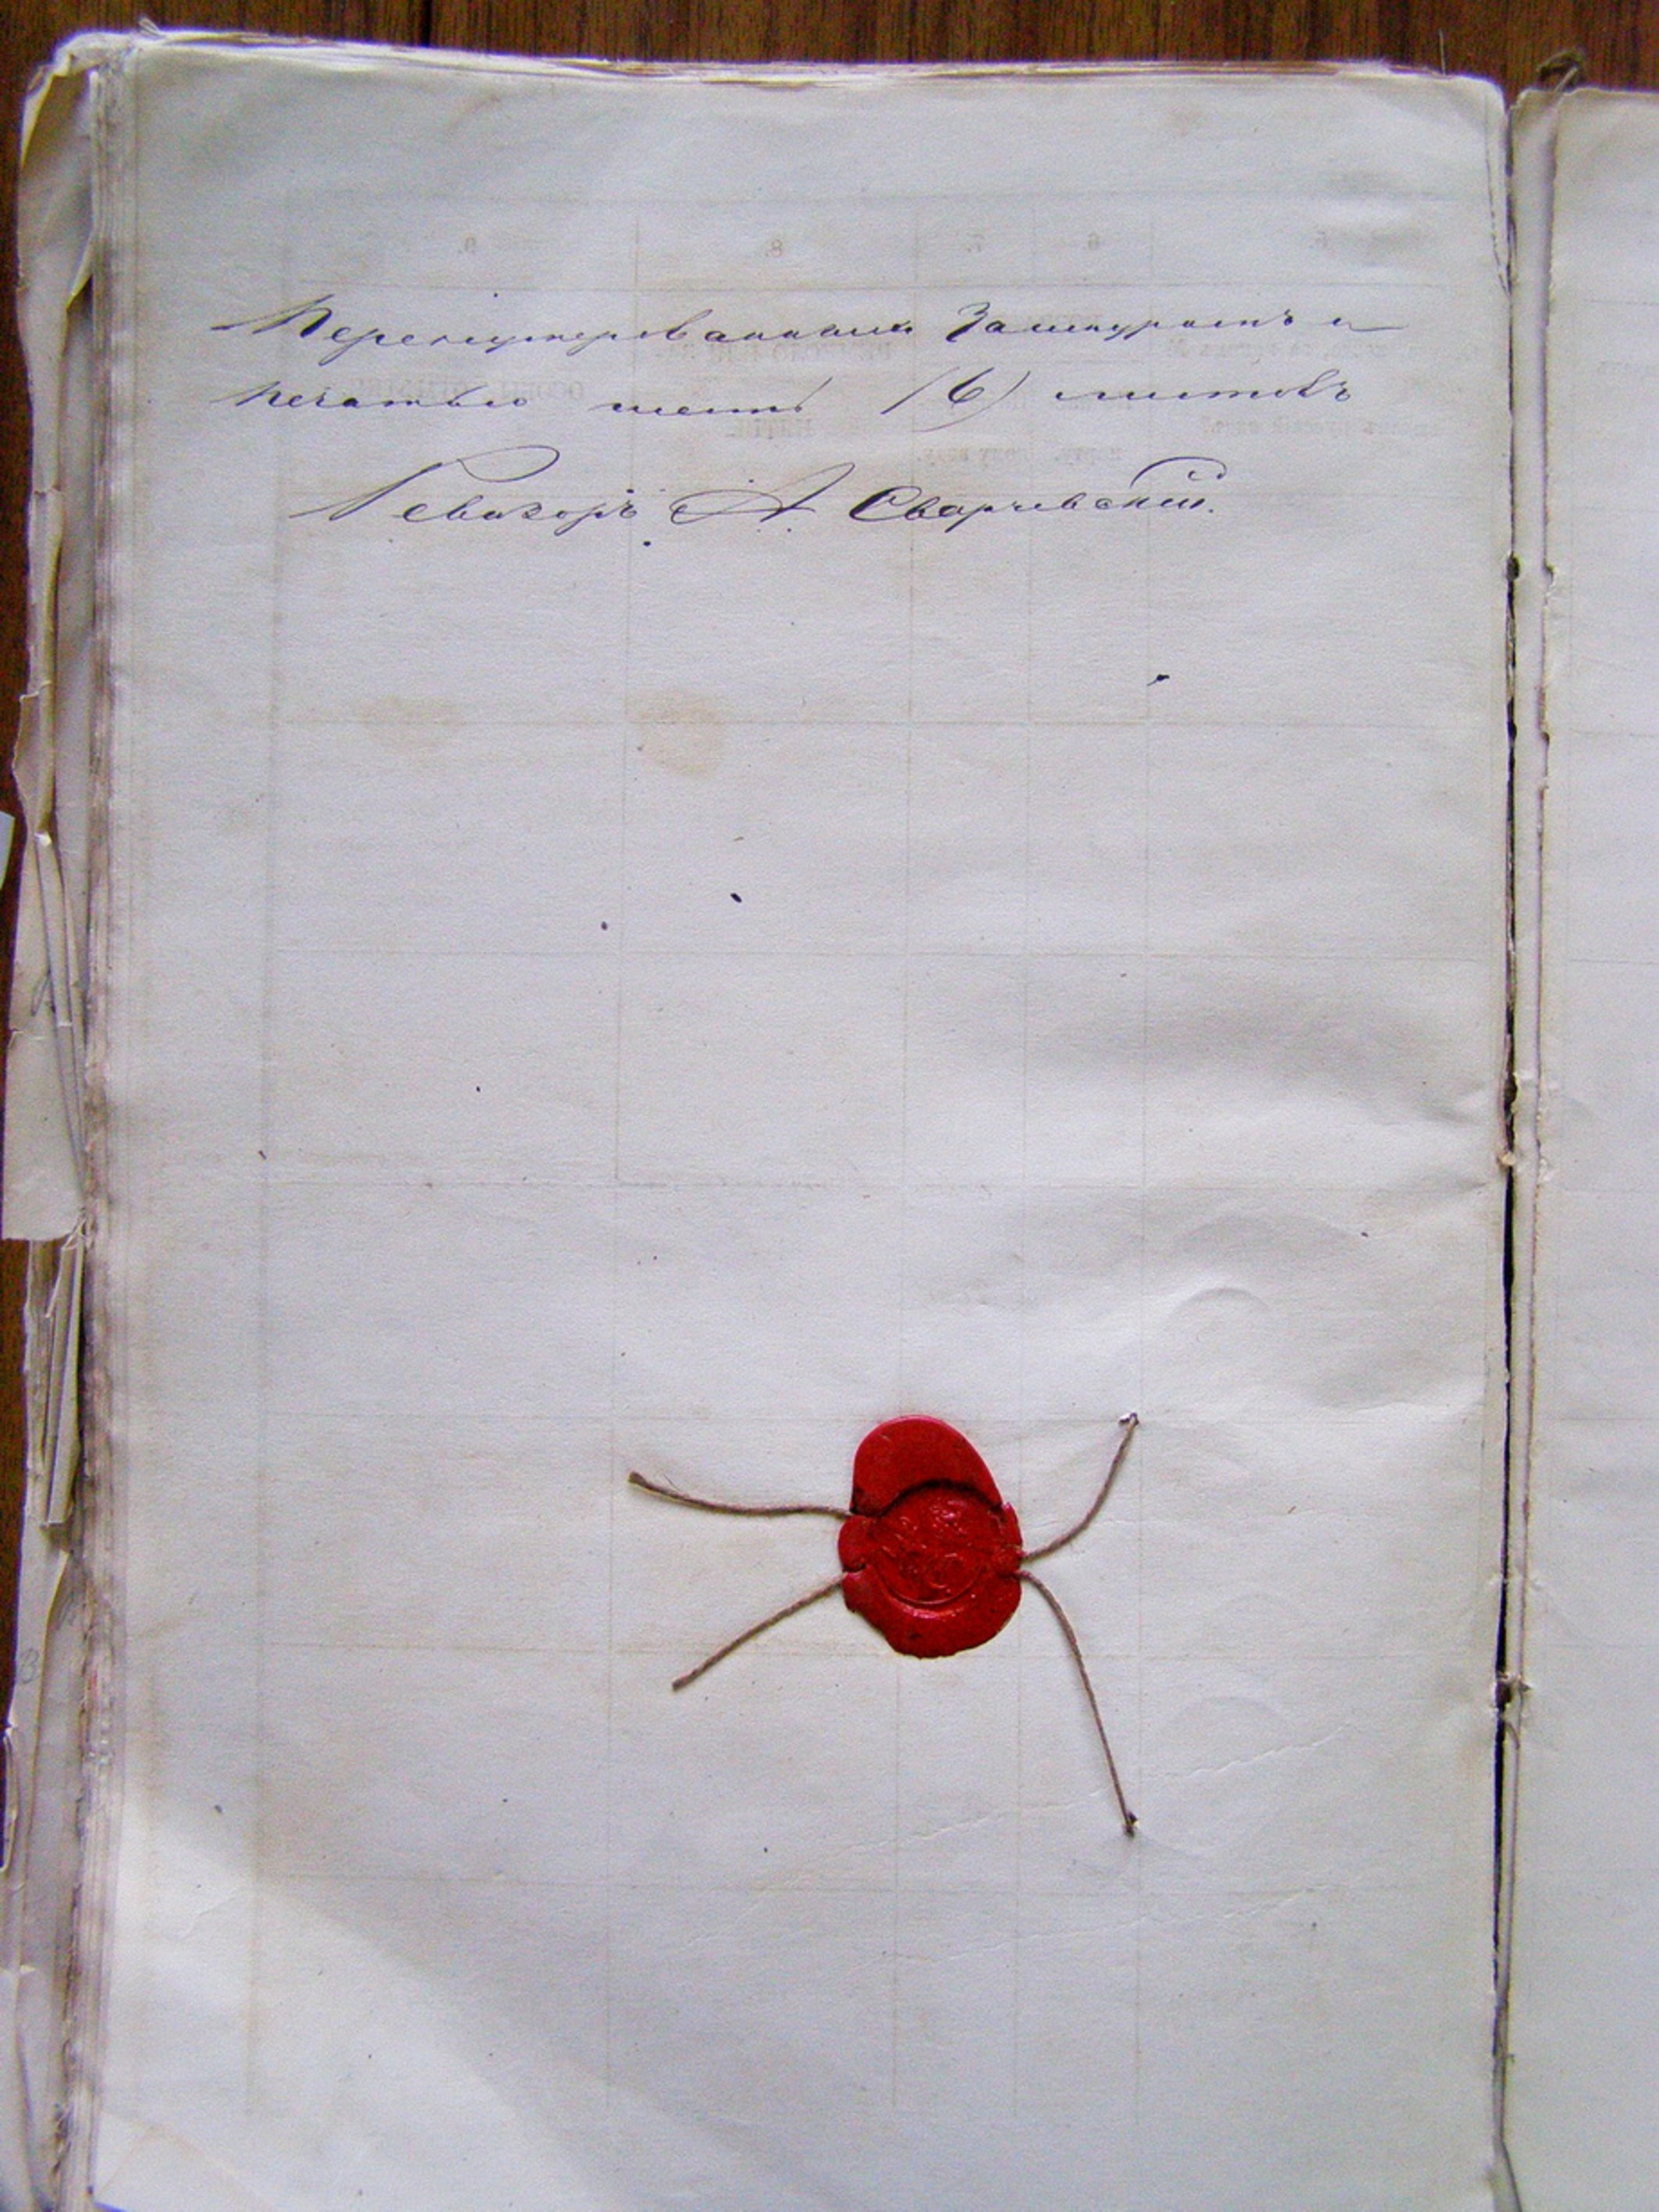 Перенумерованныхъ За шнуромъ и
печатью шесть (6) листовъ
Ревизоръ А. Сварчевскій.